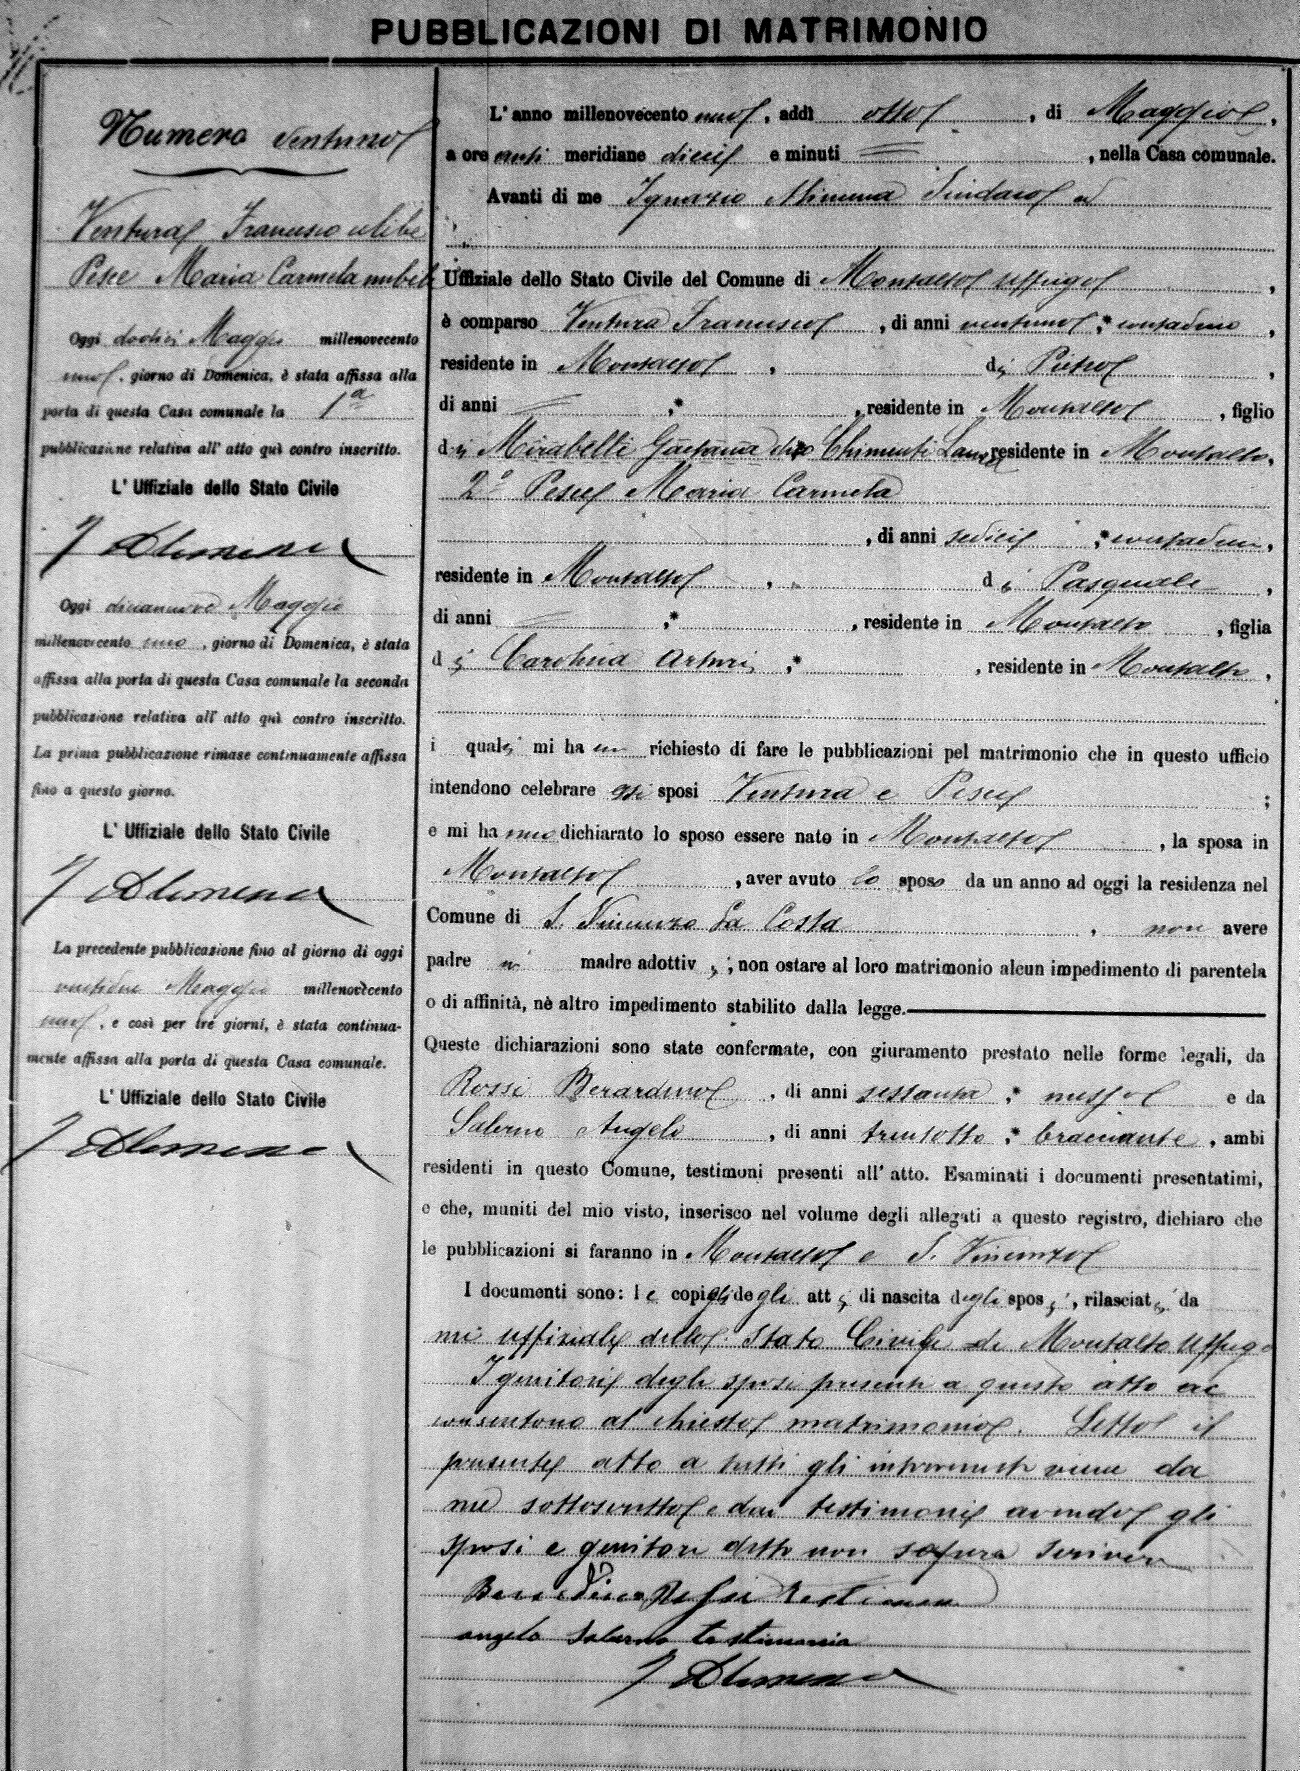 PUBBLICAZIONI DI MATRIMONIO
Numero Ventuno
Ventura Francesco celibe
Pesce Maria Carmela nubile
Oggi dodici Maggio millenovecento
uno, giorno di Domenica, è stata affissa alla
porta di questa Casa comunale la 1ª
pubblicazione relativa all' atto quì contro inscritto.
L' Uffiziale dello Stato Civile
I Alimena
Oggi diciannove Maggio
millenovecento uno, giorno di Domenica, è stata
affissa alla porta di questa Casa comunale la seconda
pubblicazione relativa all' atto quì contro inscritto.
La prima pubblicazione rimase continuamente affissa
fino a questo giorno.
L' Uffiziale dello Stato Civile
I Alimena
La precedente pubblicazione fino al giorno di oggi
ventidue Maggio millenovecento
uno, e così per tre giorni, è stata continua-
mente affissa alla porta di questa Casa comunale.
L' Uffiziale dello Stato Civile
I Alimena
L' anno millenovecento uno, addì otto, di Maggio,
a ore anti meridiane dieci e minuti =, nella Casa comunale.
Avanti di me Ignazio Alimena Sindaco ed
Uffiziale dello Stato Civile del Comune di Montalto Uffugo,
è comparso Ventura Francesco, di anni ventuno,* contadino,
residente in Montalto, di Pietro,
di anni =,*, residente in Montalto, figlio
di Mirabelli Gaetana Chimenti Laura residente in Montalto,
2º Pesce Maria Carmela
, di anni sedici,* contadina,
residente in Montalto, di Pasquale,
di anni =,*, residente in Montalto, figlia
di Carolina Arturi,*, residente in Montalto,
i quali mi hanno richiesto di fare le pubblicazioni pel matrimonio che in questo ufficio
intendono celebrare gli sposi Ventura e Pesce;
e mi hanno dichiarato lo sposo essere nato in Montalto, la sposa in
Montalto, aver avuto lo sposo da un anno ad oggi la residenza nel
Comune di S. Vincenzo La Costa, non avere
padre nè madre adottivi; non ostare al loro matrimonio alcun impedimento di parentela
o di affinità, nè altro impedimento stabilito dalla legge.
Queste dichiarazioni sono state confermate, con giuramento prestato nelle forme legali, da
Rossi Berardino, di anni sessanta,* messo e da
Salerno Angelo, di anni trentotto,* bracciante, ambi
residenti in questo Comune, testimoni presenti all' atto. Esaminati i documenti presentatimi,
e che, muniti del mio visto, inserisco nel volume degli allegati a questo registro, dichiaro che
le pubblicazioni si faranno in Montalto e S. Vincenzo
I documenti sono: le copie degli atti di nascita degli sposi, rilasciati da
me uffiziale dello Stato Civile di Montalto Uffugo
I genitori degli sposi presenti a questo atto ac
consentono al chiesto matrimonio. Letto il
presente atto a tutti gli intervenuti viene da
me sottoscritto e dai testimoni avendo gli
sposi e genitori detto non sapere scrivere
Rossi testimone
angelo Salerno testimonia
I Alimena